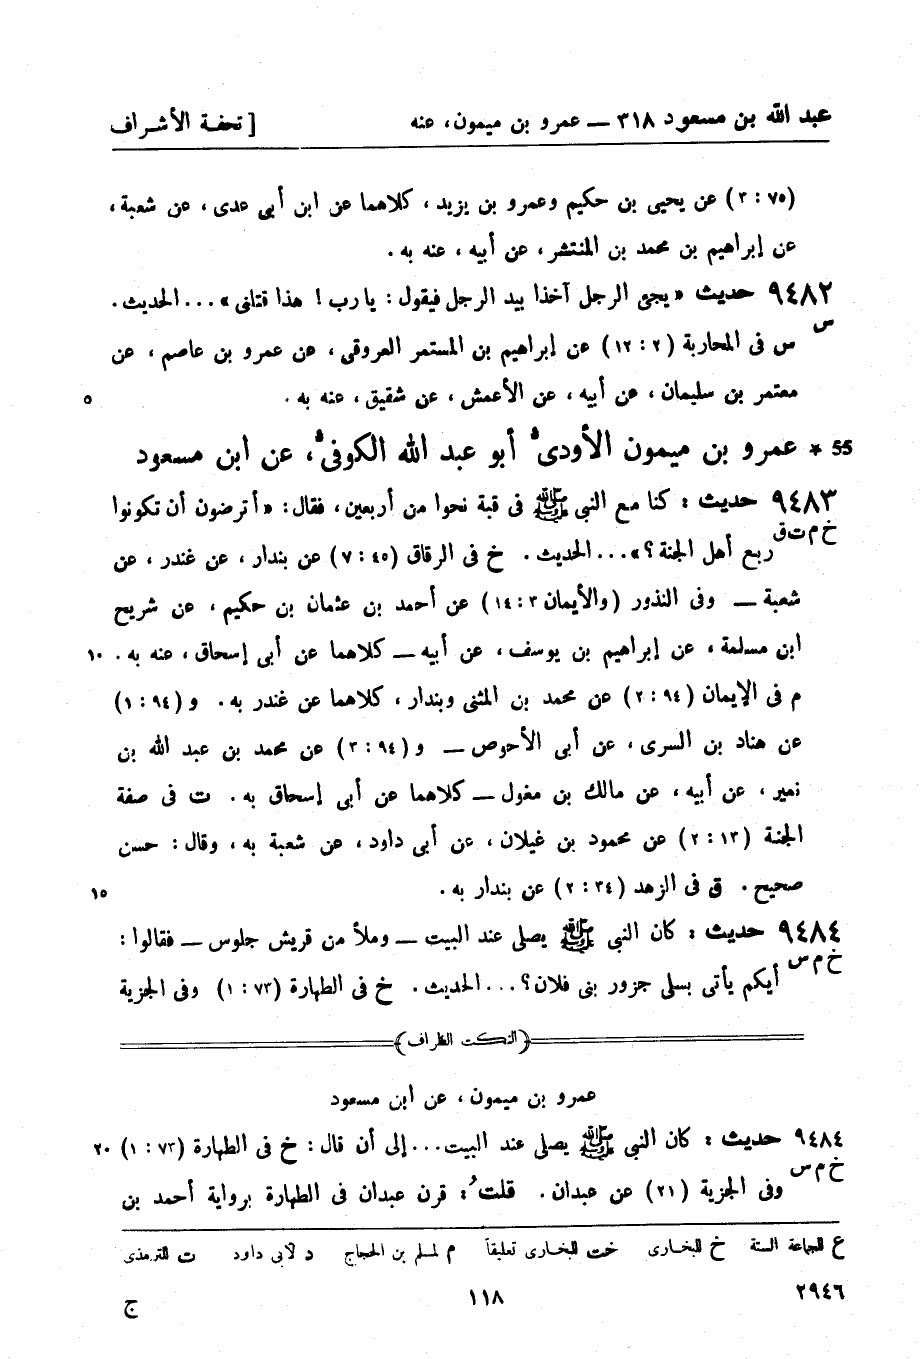 عبد الله بن مسعود ٣١٨ — عمرو بن ميمون، عنه [ تحفة الأشراف
(٧٥ : ٣) عن يحيى بن حكيم وعمرو بن يزيد ، كلاهما عن ابن أبى عدى ، عن شعبة ،
عن إبراهيم بن محمد بن المنتشر ، عن أبيه ، عنه به .
٩٤٨٢ حديث « يجئ الرجل آخذا بيد الرجل فيقول : يا رب ! هذا قتلنى » ... الحديث .
س
س فى المحاربة (٢ : ١٢) عن إبراهيم بن المستمر العروقى ، عن عمرو بن عاصم ، عن
معتمر بن سليمان ، عن أبيه ، عن الأعمش ، عن شقيق ، عنه به . ٥
55 * عمرو بن ميمون الأودىُّ أبو عبد الله الكوفىُّ، عن ابن مسعود
٩٤٨٣ حديث : كنا مع النبى ﷺ فى قبة نحوا من أربعين ، فقال : « أترضون أن تكونوا
خ م ت ق
ربع أهل الجنة ؟ » ... الحديث . خ فى الرقاق (٤٥ : ٧) عن بندار ، عن غندر ، عن
شعبة — وفى النذور (والأيمان ٣ : ١٤) عن أحمد بن عثمان بن حكيم ، عن شريح
ابن مسلمة ، عن إبراهيم بن يوسف ، عن أبيه — كلاهما عن أبى إسحاق ، عنه به . ١٠
م فى الإيمان (٩٤ : ٢) عن محمد بن المثنى وبندار ، كلاهما عن غندر به . و (٩٤ : ١)
عن هناد بن السرى ، عن أبى الأحوص — و (٩٤ : ٣) عن محمد بن عبد الله بن
نمير ، عن أبيه ، عن مالك بن مغول — كلاهما عن أبى إسحاق به . ت فى صفة
الجنة (١٣ : ٢) عن محمود بن غيلان ، عن أبى داود ، عن شعبة به ، وقال : حسن
صحيح . ق فى الزهد (٣٤ : ٢) عن بندار به . ١٥
٩٤٨٤ حديث : كان النبى ﷺ يصلى عند البيت — وملأ من قريش جلوس — فقالوا :
خ م س
أيكم يأتى بسلى جزور بنى فلان ؟ ... الحديث . خ فى الطهارة (٧٣ : ١) وفى الجزية
(النكت الظراف)
عمرو بن ميمون ، عن ابن مسعود
٩٤٨٤ حديث : كان النبى ﷺ يصلى عند البيت ... إلى أن قال : خ فى الطهارة (٧٣ : ١) ٢٠
خ م س
وفى الجزية (٢١) عن عبدان . قلتُ : قرن عبدان فى الطهارة برواية أحمد بن
ع للجماعة الستة خ للبخارى خت للبخارى تعليقاً م لمسلم بن الحجاج د لابى داود ت للترمذى
٢٩٤٦ ١١٨ ج